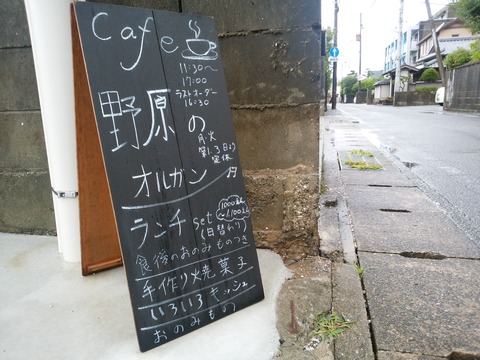 cafe
11:30〜
17:00
ラストオーダー
16:30
野原の
月・火
第1.3日よう
定休
オルガン
ランチset
1000えん
〜1,100えん
(日替わり)
食後のおのみものつき
手作り焼菓子
いろいろキッシュ
おのみもの